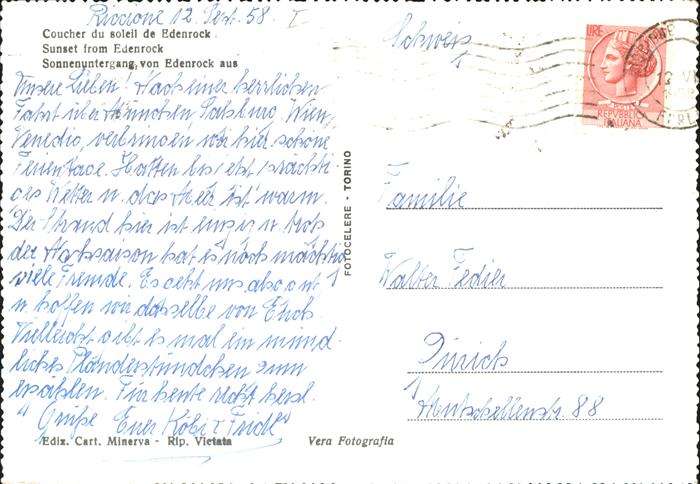 Riccione 12. Sept. 58
Coucher du soleil de Edenrock
Sunset from Edenrock
Sonnenuntergang von Edenrock aus
Schweiz
LIRE
REPVBBLICA
ITALIANA
Unsere Lieben! Nach einer herrlichen
Fahrt über München Salzburg, Wien,
Venedig, verbringen wir hier schöne
Ferientage. Hatten bis jetzt prächti-
ges Wetter u. das Meer ist warm.
Der Strand hier ist einzig u. trotz
der Nachsaison hat es noch mächtig
viele Fremde. Es geht uns also gut
u. hoffen wir dasselbe von Euch.
Vielleicht gibt es mal ein münd-
liches Plauderstündchen zum
erzählen. Für heute recht herzl.
Grüße Euer Köbi & Fridl
FOTOCELERE - TORINO
Familie
Walter Fedier
Zürich
Mutschellenstr. 88
Ediz. Cart. Minerva - Rip. Vietata
Vera Fotografia